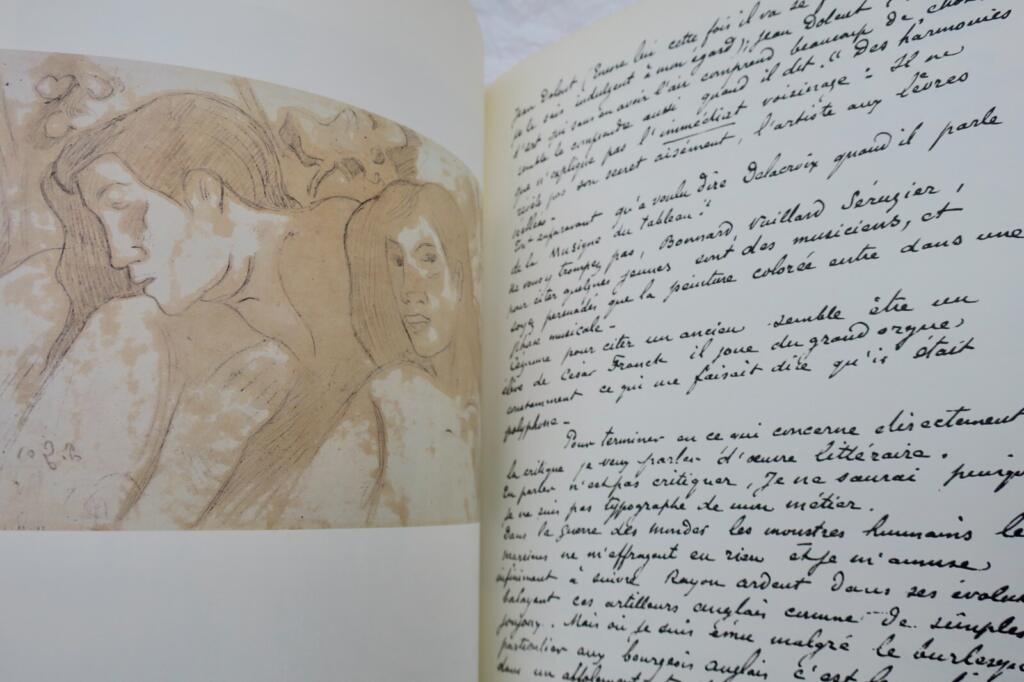 Jean Dolent (Encore lui cette fois il va se
de le suis indulgent à mon égard); Jean Dolent
d'est qui sans en avoir l'air comprend beaucoup de choses
semble le comprendre aussi quand il dit. "Des harmonies
que n'explique pas l'immédiat voisinage: Il ne
révèle pas son secret aisément, l'artiste aux lèvres
scellées
Est auparavant qu'a voulu dire Delacroix quand il parle
de la Musique du tableau."
Ne vous y trompez pas, Bonnard Vuillard Sérusier,
pour citer quelques jeunes sont des musiciens, et
soyez persuadés que la peinture colorée entre dans une
phase musicale -
Cézanne pour citer un ancien semble être un
élève de César Franck il joue du grand orgue
constamment ce qui me faisait dire qu'il était
polyphone -
Pour terminer en ce qui concerne directement
la critique je veux parler d'œuvre littéraire.
En parler n'est pas critiquer, Je ne saurai pourquoi
je ne suis pas typographe de mon métier.
Dans la guerre des mondes les monstres humains le
marsiens ne m'effrayent en rien et je m'amuse
infiniment à suivre Rayon ardent dans ses évolu
balayant ces artilleurs anglais comme de simples
joujoux. Mais où je suis ému malgré le burlesque
particulier aux bourgeois anglais c'est
dans un affolement
10 f. B